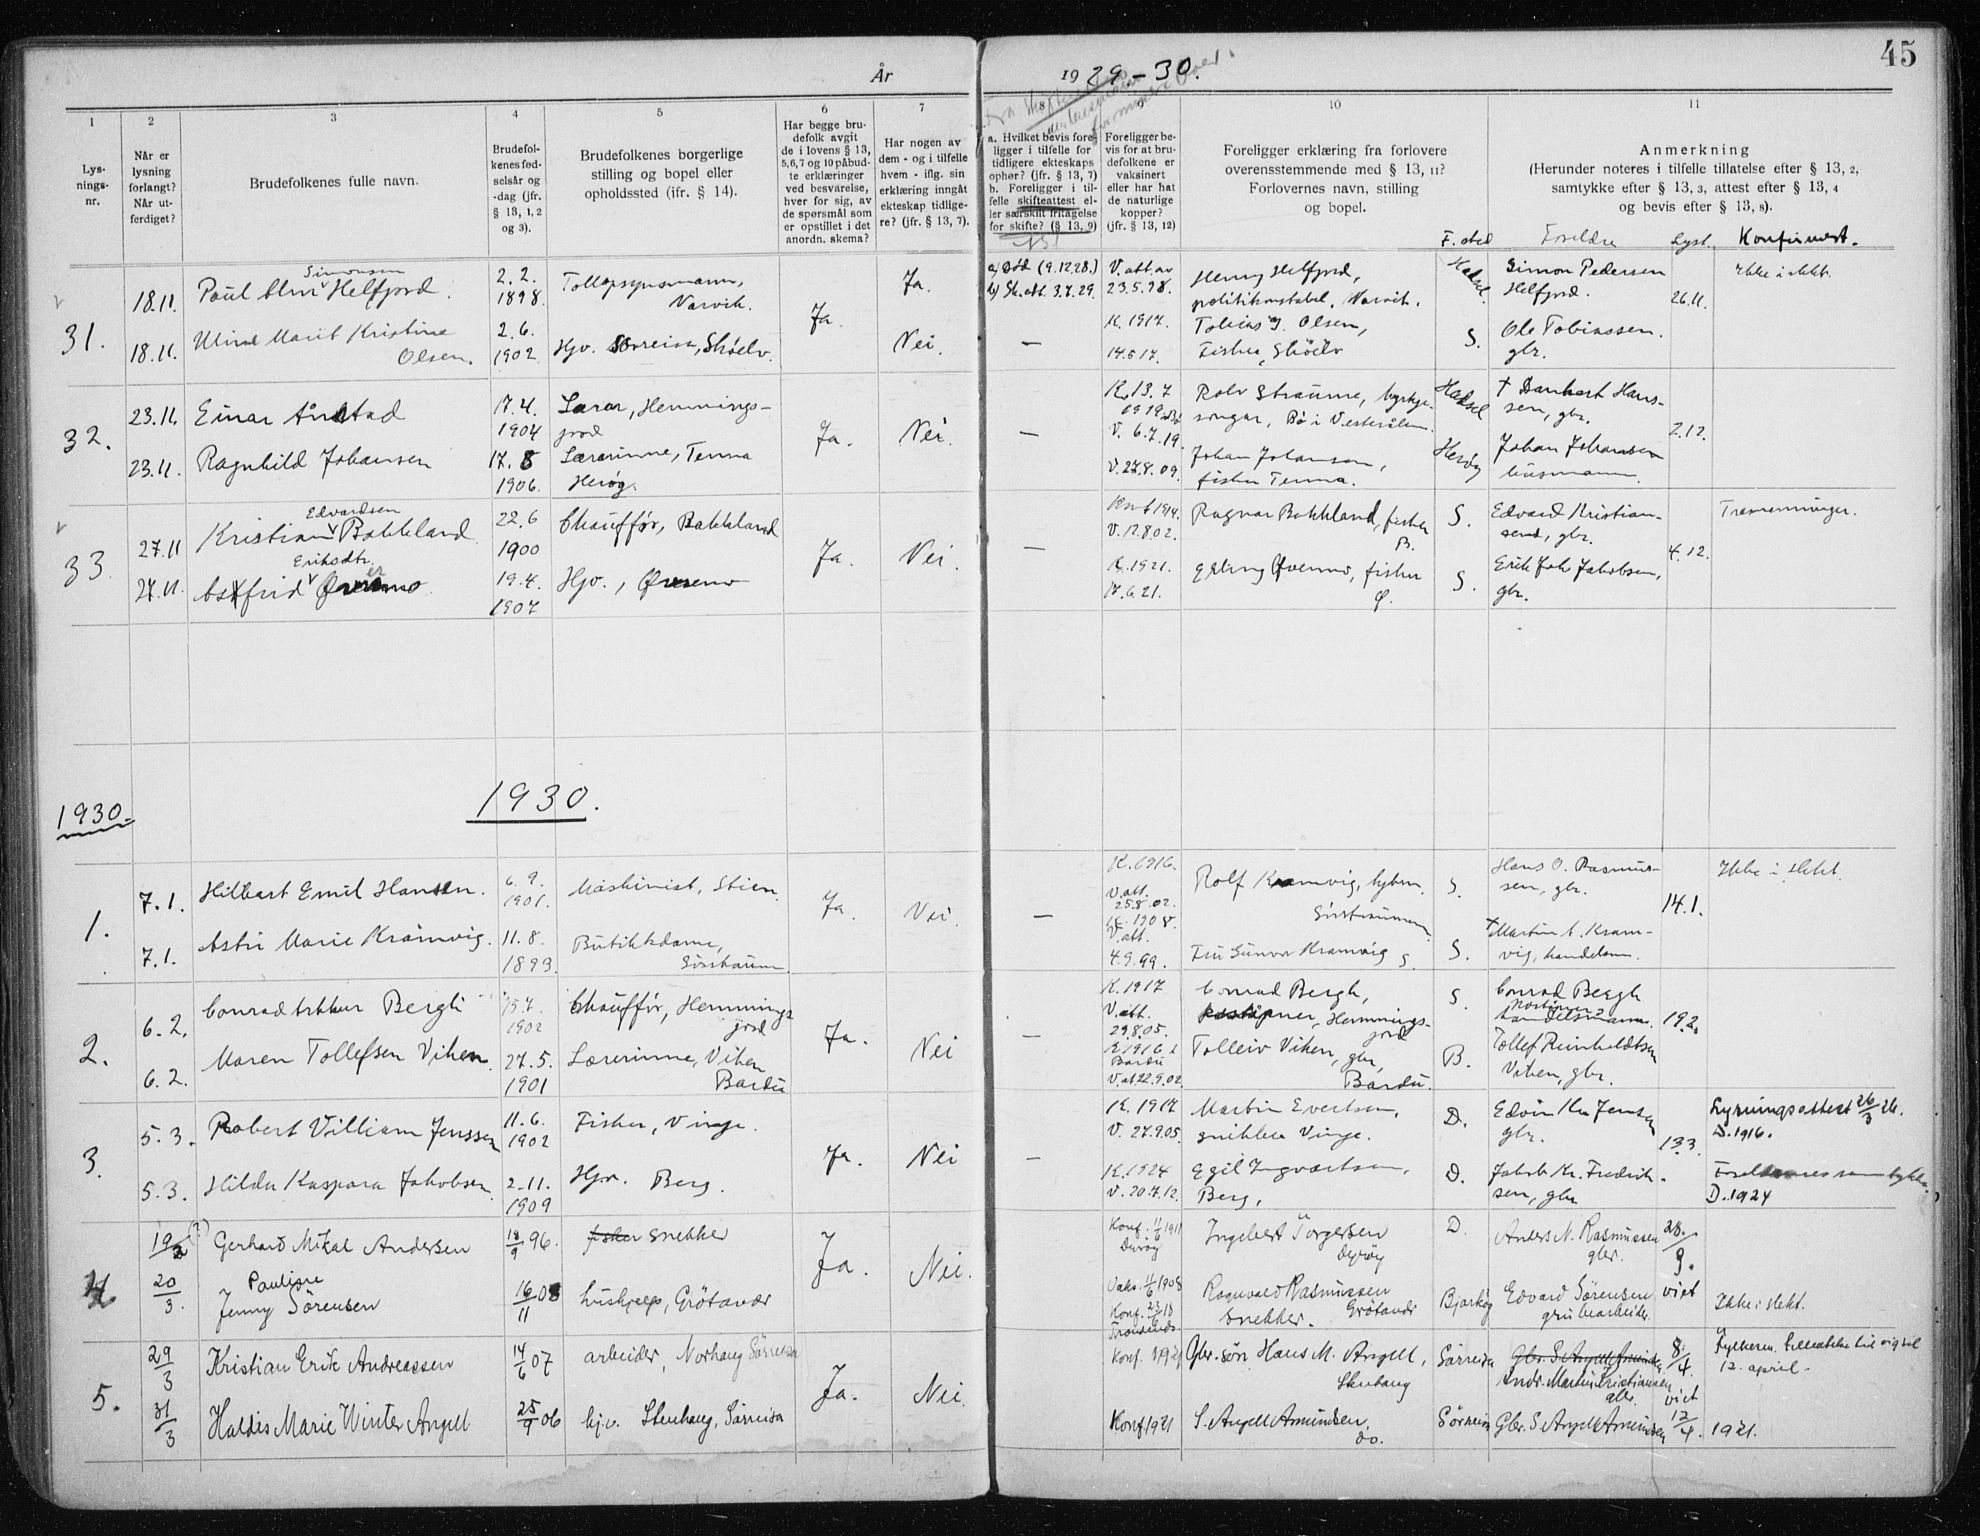 45
År
19 29-30.
1
2
3
4
5
6
7
8
9
10
11
Lys-
nings-
nr.
Når er
lysning
forlangt?
Når ut-
ferdiget?
Brudefolkenes fulle navn.
Brudefol-
kenes fød-
selsår og
-dag (jfr.
§ 13, 1, 2
og 3).
Brudefolkenes borgerlige
stilling og bopel eller
opholdssted (ifr. § 14).
Har begge bru-
defolk avgit
de i lovens § 13,
5, 6, 7 og 10 påbud-
te erklæringer
ved besvarelse,
hver for sig, av
de spørsmål som
er opstillet i det
anordn. skema?
Har nogen av
dem - og i tilfelle
hvem - iflg. sin
erklæring inngåt
ekteskap tidlige-
re? (jfr. § 13, 7).
a. Hvilket bevis fore-
ligger i tilfelle for
tidligere ekteskaps
ophør? (jfr. § 13, 7)
b. Foreligger i til-
felle skifteattest el-
ler særskilt fritagelse
for skifte? (§ 13, 9)
Foreligger be-
vis for at bru-
defolkene er
vaksinert
eller har hat
de naturlige
kopper?
(jfr. § 13, 12)
Foreligger erklæring fra forlovere
overensstemmende med § 13, 11?
Forlovernes navn, stilling
og bopel.
Anmerkning
(Herunder noteres i tilfelle tillatelse efter § 13, 2,
samtykke efter § 13, 3, attest efter § 13, 4
og bevis efter § 13, 8).
F. sted
Foreldre
Lyst.
Konfirmert.
31.
18.11.
Simonsen
Paul Helfjord.
2.2.
1898.
Narvik.
Ja.
Ja.
a) Død (9.12.28.)
b) Sk.att. 3.7.29.
V. att. av
23.5.98.
Henry Helfjord,
politikonstabel, Narvik.
Hadsel.
Simon Pedersen
Helfjord.
26.11.
Ikke i slekt.
18.11.
Marit Kristine
Olsen.
2.6.
1902
Hjv. Sørreisa, Skøelv.
Nei.
—
K. 1917.
14.6.17.
Tobias J. Olsen,
Fisker, Skøelv
S.
Ole Tobiassen.
gbr.
32.
23.11.
Einar Ånstad
17.4.
1904
Lærar, Hemmings-
jord
Ja.
Nei.
—
K. 13.7
V. 6.7.19.
Rolv Straume, kyrkje-
songar, Bø i Vesterålen.
Hadsel
† Dankert Hans-
sen, gbr.
2.12.
23.11.
Ragnhild Johansen
17.8
1906.
Lærerinne, Tenna
Herøy.
V. 27.8.09.
Johan Johansen,
fisker Tenna.
Herøy
Johan Johansen
husmann.
33
27.11
Edvardsen
Kristian Bakkland.
22.6
1900
Chauffør, Bakkland
Ja.
Nei.
—
Konf 1914.
V. 12.8.02.
Ragnar Bakkland, fisker
B.
S.
Edvard Kristian-
sen, gbr.
4.12.
Tremenninger.
27.11.
Eriksdtr.
Astfrid
19.4.
1907
Hjv.,
K. 1921.
17.6.21.
Erling Øvermo, fisker
Ø.
S.
Erik Joh Jakobsen,
gbr.
1930.
1930.
1.
7.1.
Hilbart Emil Hansen.
6.9.
1901.
Maskinist, Stien.
Ja.
Nei.
—
K. 1916.
V. att.
25.8.02.
Rolf Kramvig,
S.
Hans O. Rasmus-
sen, gbr.
14.1.
Ikke i slekt.
7.1.
Astri Marie Kramvig.
11.8.
1893.
Butikkdame,
K. 1908.
V. att.
4.9.99.
Fru Gunvor Kramvig S.
S.
† Martin A. Kram-
vig, handelsm.
2.
6.2.
Conrad Arthur Bergh
15.7.
1902
Chauffør, Hemmings
jord
Ja.
Nei
—
K. 1917
V. att.
29.8.05.
Conrad Bergh,
Hemmings-
jord
S.
Conrad Bergh
handelsmann.
19.2.
6.2.
Maren Tollefsen Viken.
27.5.
1901
Lærerinne, Viken
Bardu
K 1916 i
Bardu
V. at 22.9.02.
Tolleiv Viken, gbr.
Bardu.
B.
Tollef Reinholdtsen
Viken, gbr.
3.
5.3.
Robert Villiam Jenssen
11.6.
1902
Fisker, Vinje.
Ja.
Nei
—
K. 1917
V. 27.9.05.
Martin Evertsen,
snikker Vinje.
D.
Edvin Kr. Jensen
gbr.
13.3.
Lysningsattest 26/3 26.
D. 1916.
5.3.
Hilda Kaspara Jakobsen
2.11.
1909
Hjv. Berg.
K. 1924
V. 20.7.12.
Egil Ingvartsen,
Berg.
D.
Jakob Kr. Fredrik-
sen, gbr
Foreldrenes samtykke.
D. 1924
4
19/3 (?)
Gerhard Mikal Andersen
18/9 96.
fisker snekker
Ja.
Nei.
Konf. 11/6 1911
Dyrøy
Ingebert Torgersen
Dyrøy
D.
Anders N. Rasmussen
gbr.
28./9.
viet
20/3.
Pauline
Jenny Sørensen
16/11 08
hushjelp, Grøtavær
Vaks. 11/6 1908
Konf. 23/6 18
Trondenes.
Ragnvald Rasmussen
snekker. Grøtavær
Bjarkøy
Edvard Sørensen
grubearbeider
Ikke i slekt.
5.
29/3
Kristian Erik Andreassen
14/6 07
arbeider, Norhaug Sørreisa
Ja.
Nei.
Konf. 1921
Gbr. søn Hans M. Angell,
Stenhaug
Sørreisa
Gbr. S. Angell Amundsen
Andr. Martin Kristiansen
gbr.
8./4.
viet
12/4.
Fylkesm. tillatelse til vigsel
12. april.
31/3
Haldis Marie Winter Angell
25/9 06
hjv. Stenhaug, Sørreisa
Konf 1921
S. Angell Amundsen,
do.
Sørreisa
Gbr. S. Angell Amundsen
1921.